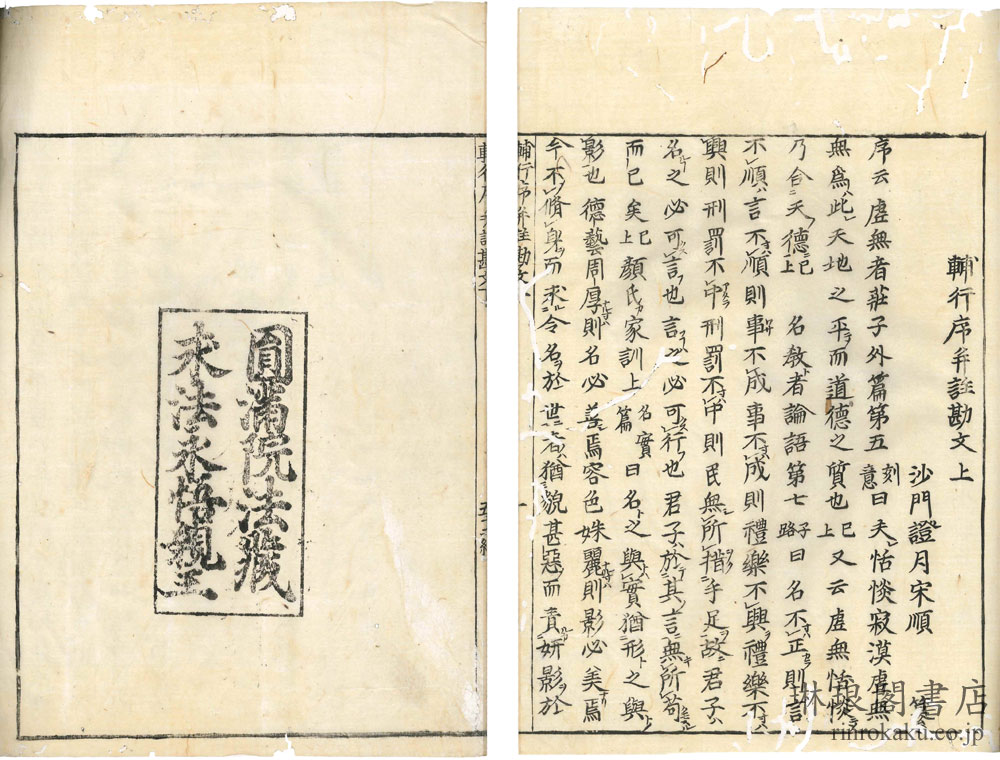 輔行序并註勘文上
沙門證月宋順
序云虛無者莊子外篇第五刻意曰夫恬惔寂漠虛無
無爲此天地之平而道德之質也已上又云虛無恬惔
乃合天德已上 名教者論語第七子路曰名不正則言
不順言不順則事不成事不成則禮樂不興禮樂不
興則刑罰不中刑罰不中則民無所措手足故君子
名之必可言也言之必可行也君子於其言無所苟
而已矣已上顏氏家訓上名實篇曰名之與實猶形之與
影也德藝周厚則名必善焉容色姝麗則影必美焉
今不脩身而求令名於世者猶貌甚惡而責妍影於
輔行序并註勘文
圓滿院法藏
永法永悟親王
琳琅閣書店
rinrokaku.co.jp